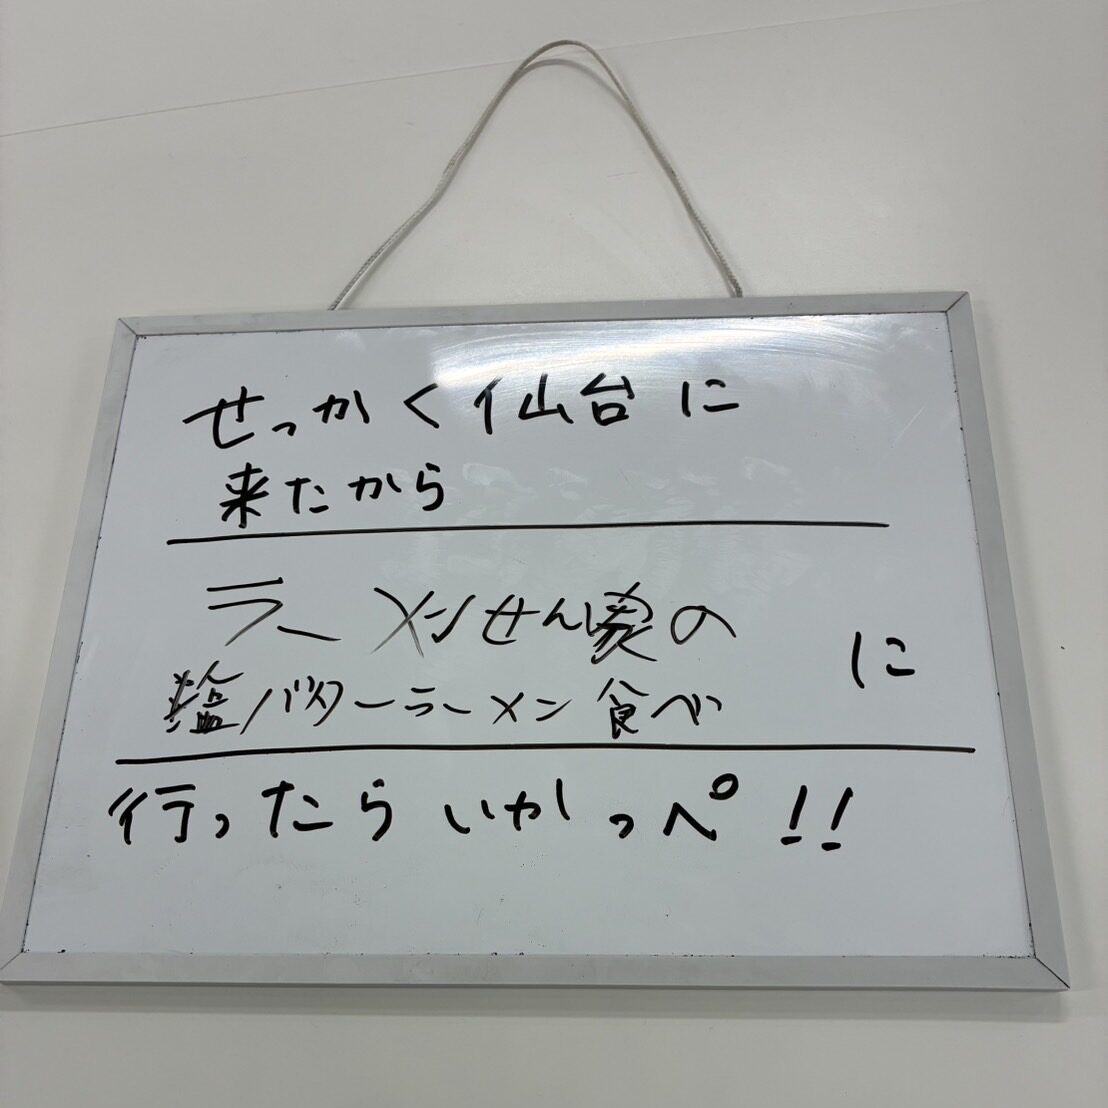 せっかく仙台に
来たから
ラーメンせん家の
塩バターラーメン食べ に
行ったらいかっぺ!!